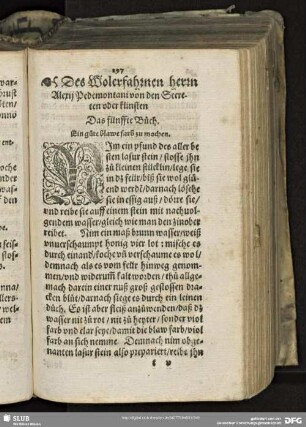 137
Des Wolerfahrnen herrn
Alexij Pedemontani von den Secre-
ten oder künsten
Das fünffte Büch.
Ein güte blawe farb zu machen.
NIm ein pfund des aller be
sten lasur stein / stosse jhn
zů kleinen stücklin / lege sie
in dz feür / biß sie wol glü-
end werdē / darnach lösche
sie in essig auß / dörre sie /
vnd reibe sie auff einem stein mit nachuol-
gendem wasser / gleich wie man den zinober
reibet. Nim ein maß brunn wasser / weiß
vnuerschaumpt honig vier lot : mische es
durch einand / koche vñ verschaume es wol /
demnach als es vom feür hinweg genom-
men / vnd widerumb kalt worden / thů allge-
mach darein einer nuß groß gestossen dra-
cken blůt / darnach siege es durch ein leinen
důch. Es ist aber fleiß anzůwenden / daß dz
wasser nit zů rot / nit zů heyter / sonder viol
farb vnd clar seye / damit die blaw farb / viol
farb an sich nemme. Demnach nim obge-
nanten lasur stein also prepariert / reibe jhn
SLUB
Wir führen Wissen.
DFG